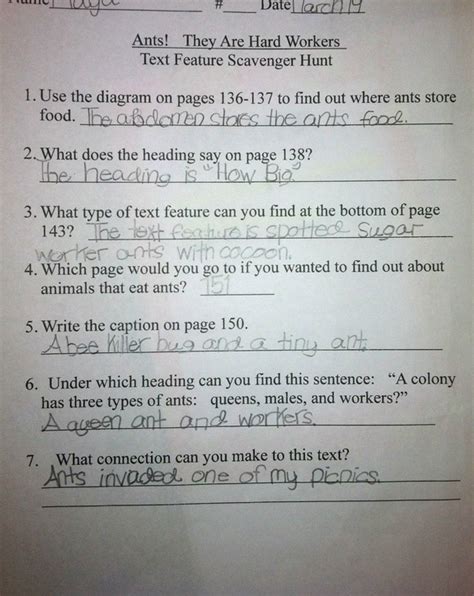 Name Maya # Date March 19
Ants! They Are Hard Workers
Text Feature Scavenger Hunt
1. Use the diagram on pages 136-137 to find out where ants store
food. The abdomen stores the ants food.
2. What does the heading say on page 138?
The heading is "How Big."
3. What type of text feature can you find at the bottom of page
143? The text feature is spotted Sugar
worker ants with cocoon.
4. Which page would you go to if you wanted to find out about
animals that eat ants? 151
5. Write the caption on page 150.
A bee killer bug and a tiny ant.
6. Under which heading can you find this sentence: "A colony
has three types of ants: queens, males, and workers?"
A qeen ant and workers.
7. What connection can you make to this text?
Ants invaded one of my picnics.